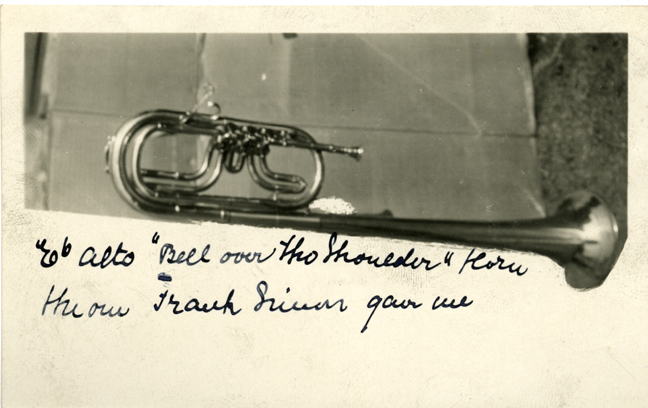 "Eb Alto "Bell over the Shoulder" Horn
the one Frank Simon gave me